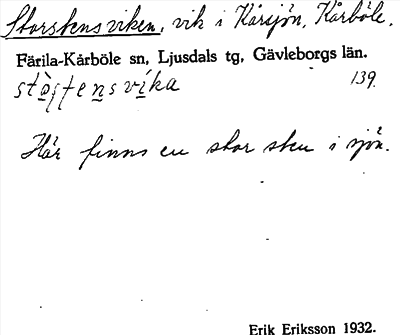 Storstensviken, vik i Kårsjön, Kårböle.
Färila-Kårböle sn, Ljusdals tg, Gävleborgs län.
139.
Här finns en stor sten i sjön.
Erik Eriksson 1932.